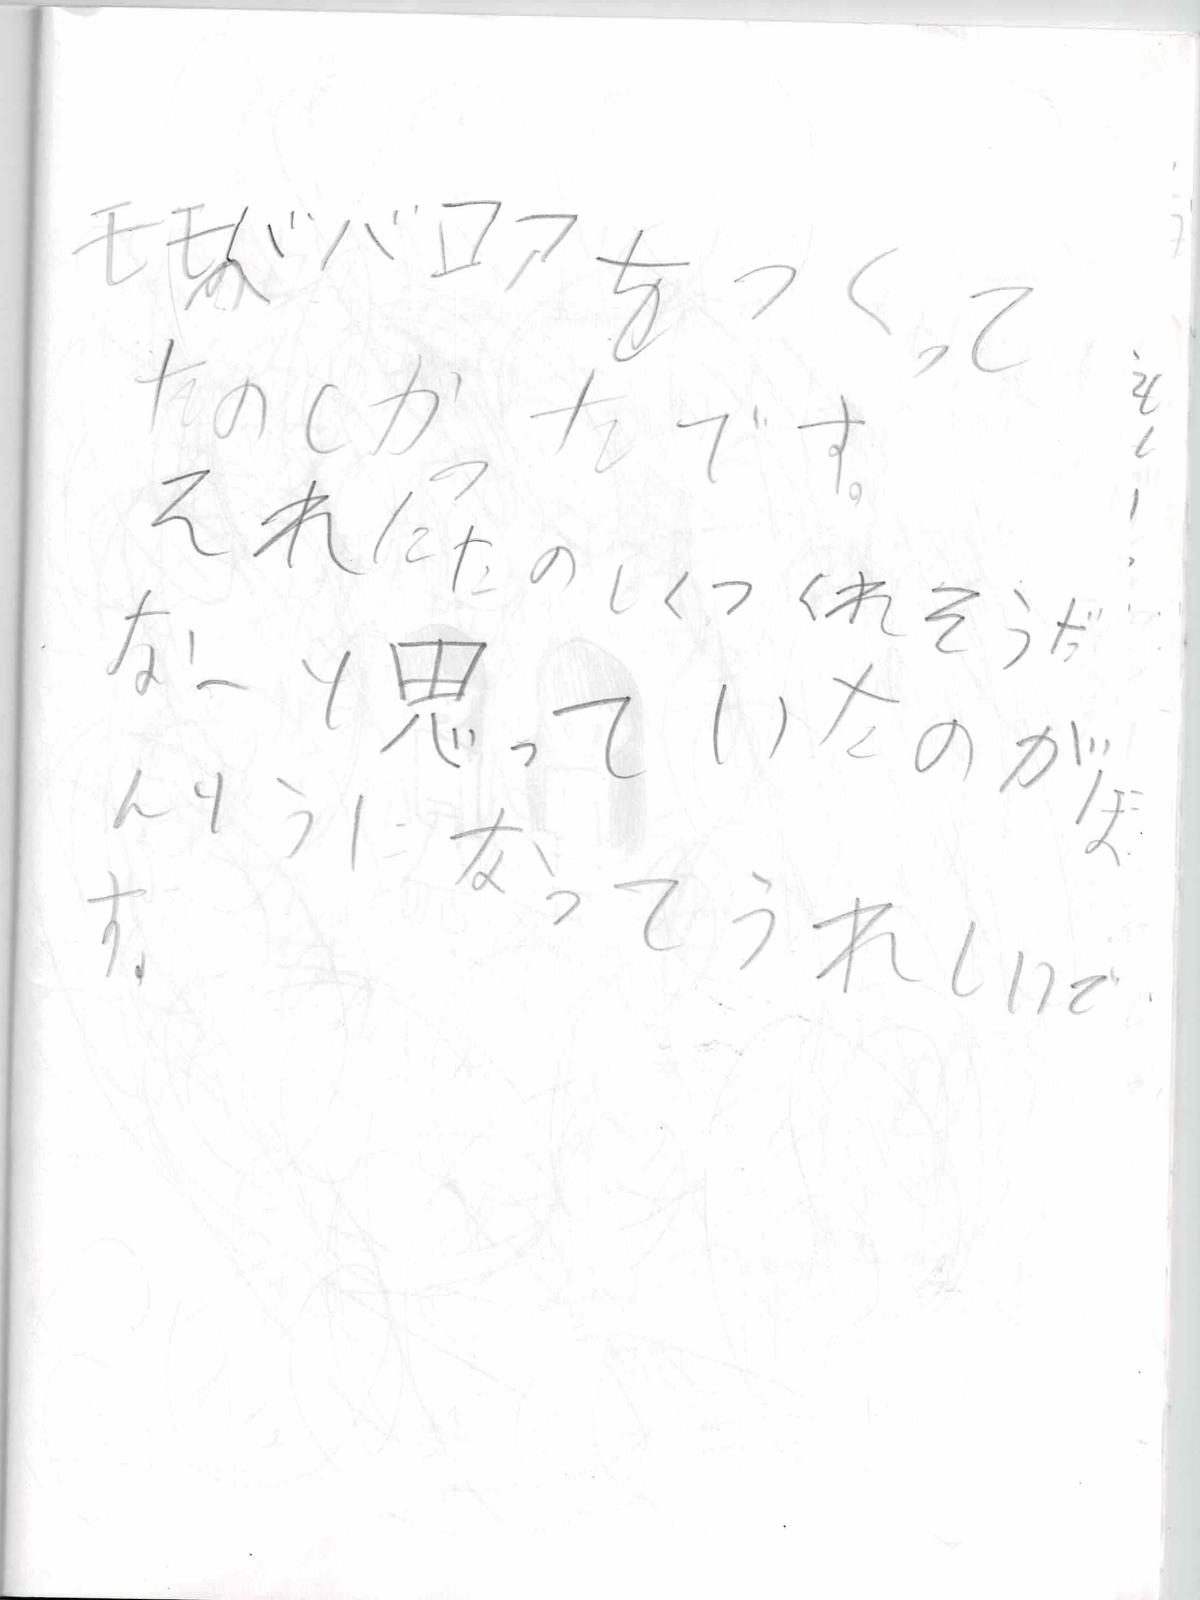 モモのババロアをつくって
たのしかったです。
それにたのしくつくれそうだ
な〜と思っていたのがほ
んとうになってうれしいで
す。